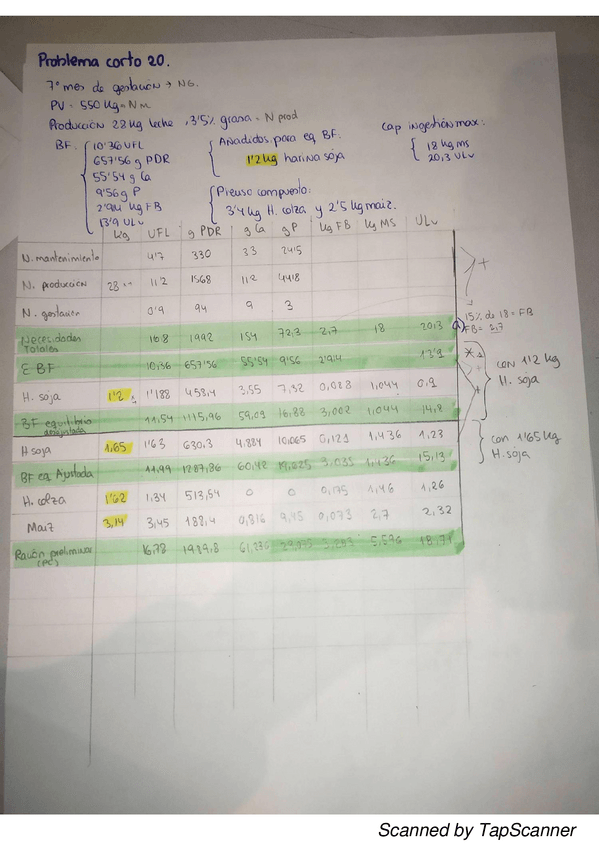 Problema corto 20.
7º mes de gestación → NG.
PV = 550 Kg = N m
Producción 28 Kg leche , 3'5% grasa = N prod
BF. { 10'36 UFL
657'56 g PDR
55'54 g Ca
9'56 g P
2'914 Kg FB
13'9 ULv
Añadidos para eq BF.
1'2 Kg harina soja
Pienso compuesto:
3'4 Kg H. colza y 2'5 Kg maiz.
cap ingestión max:
18 Kg ms
20,3 ULv
Kg UFL g PDR g Ca g P Kg FB Kg MS ULv
N. mantenimiento 4'7 330 33 24'5
N. producción 28 11'2 1568 112 44'8
N. gestación 0'9 94 9 3
Necesidades Totales 16'8 1992 154 72,3 2,7 18 20'3
15% de 18 = FB
FB = 2,7
Σ BF 10'36 657'56 55'54 9'56 2'914 13'9
H. soja 1'2 1'188 458,4 3,55 7,32 0,088 1,044 0,9
BF equilibrio 11,54 1115,96 59,09 16,88 3,002 1,044 14,8
con 1'2 Kg
H. soja
H soja 1,65 1'63 630,3 4,884 10,065 0,121 1,436 1,23
BF eq Ajustada 11,99 1287,86 60,42 19,625 3,035 1,436 15,13
con 1'65 Kg
H. soja
H. colza 1'62 1,34 513,54 0 0 0,175 1,46 1,26
Maiz 3,14 3,45 188,4 0,816 9,45 0,073 2,7 2,32
Ración preliminar (PC) 16,78 1989,8 61,236 29,075 3,283 5,596 18,71
Scanned by TapScanner